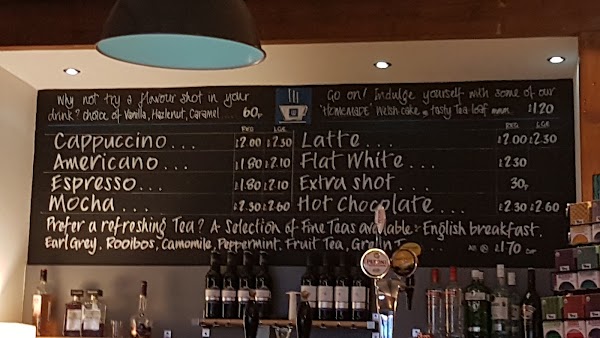 Why not try a flavour shot in your
drink? choice of Vanilla, Hazlenut, Caramel... 60p
Go on! Indulge yourself with some of our
'HOMEMADE' Welsh cake & tasty Tea loaf mmm. £1.20
REG LGE
Cappuccino... £2.00 £2.30
Americano... £1.80 £2.10
Espresso... £1.80 £2.10
Mocha... £2.30 £2.60
REG LGE
Latte... £2.00 £2.30
Flat White... £2.30
Extra shot... 30p
Hot Chocolate... £2.30 £2.60
Prefer a refreshing Tea? A Selection of Fine Teas available:- English breakfast,
Earl Grey, Rooibos, Camomile, Peppermint, Fruit Tea, All @ £1.70